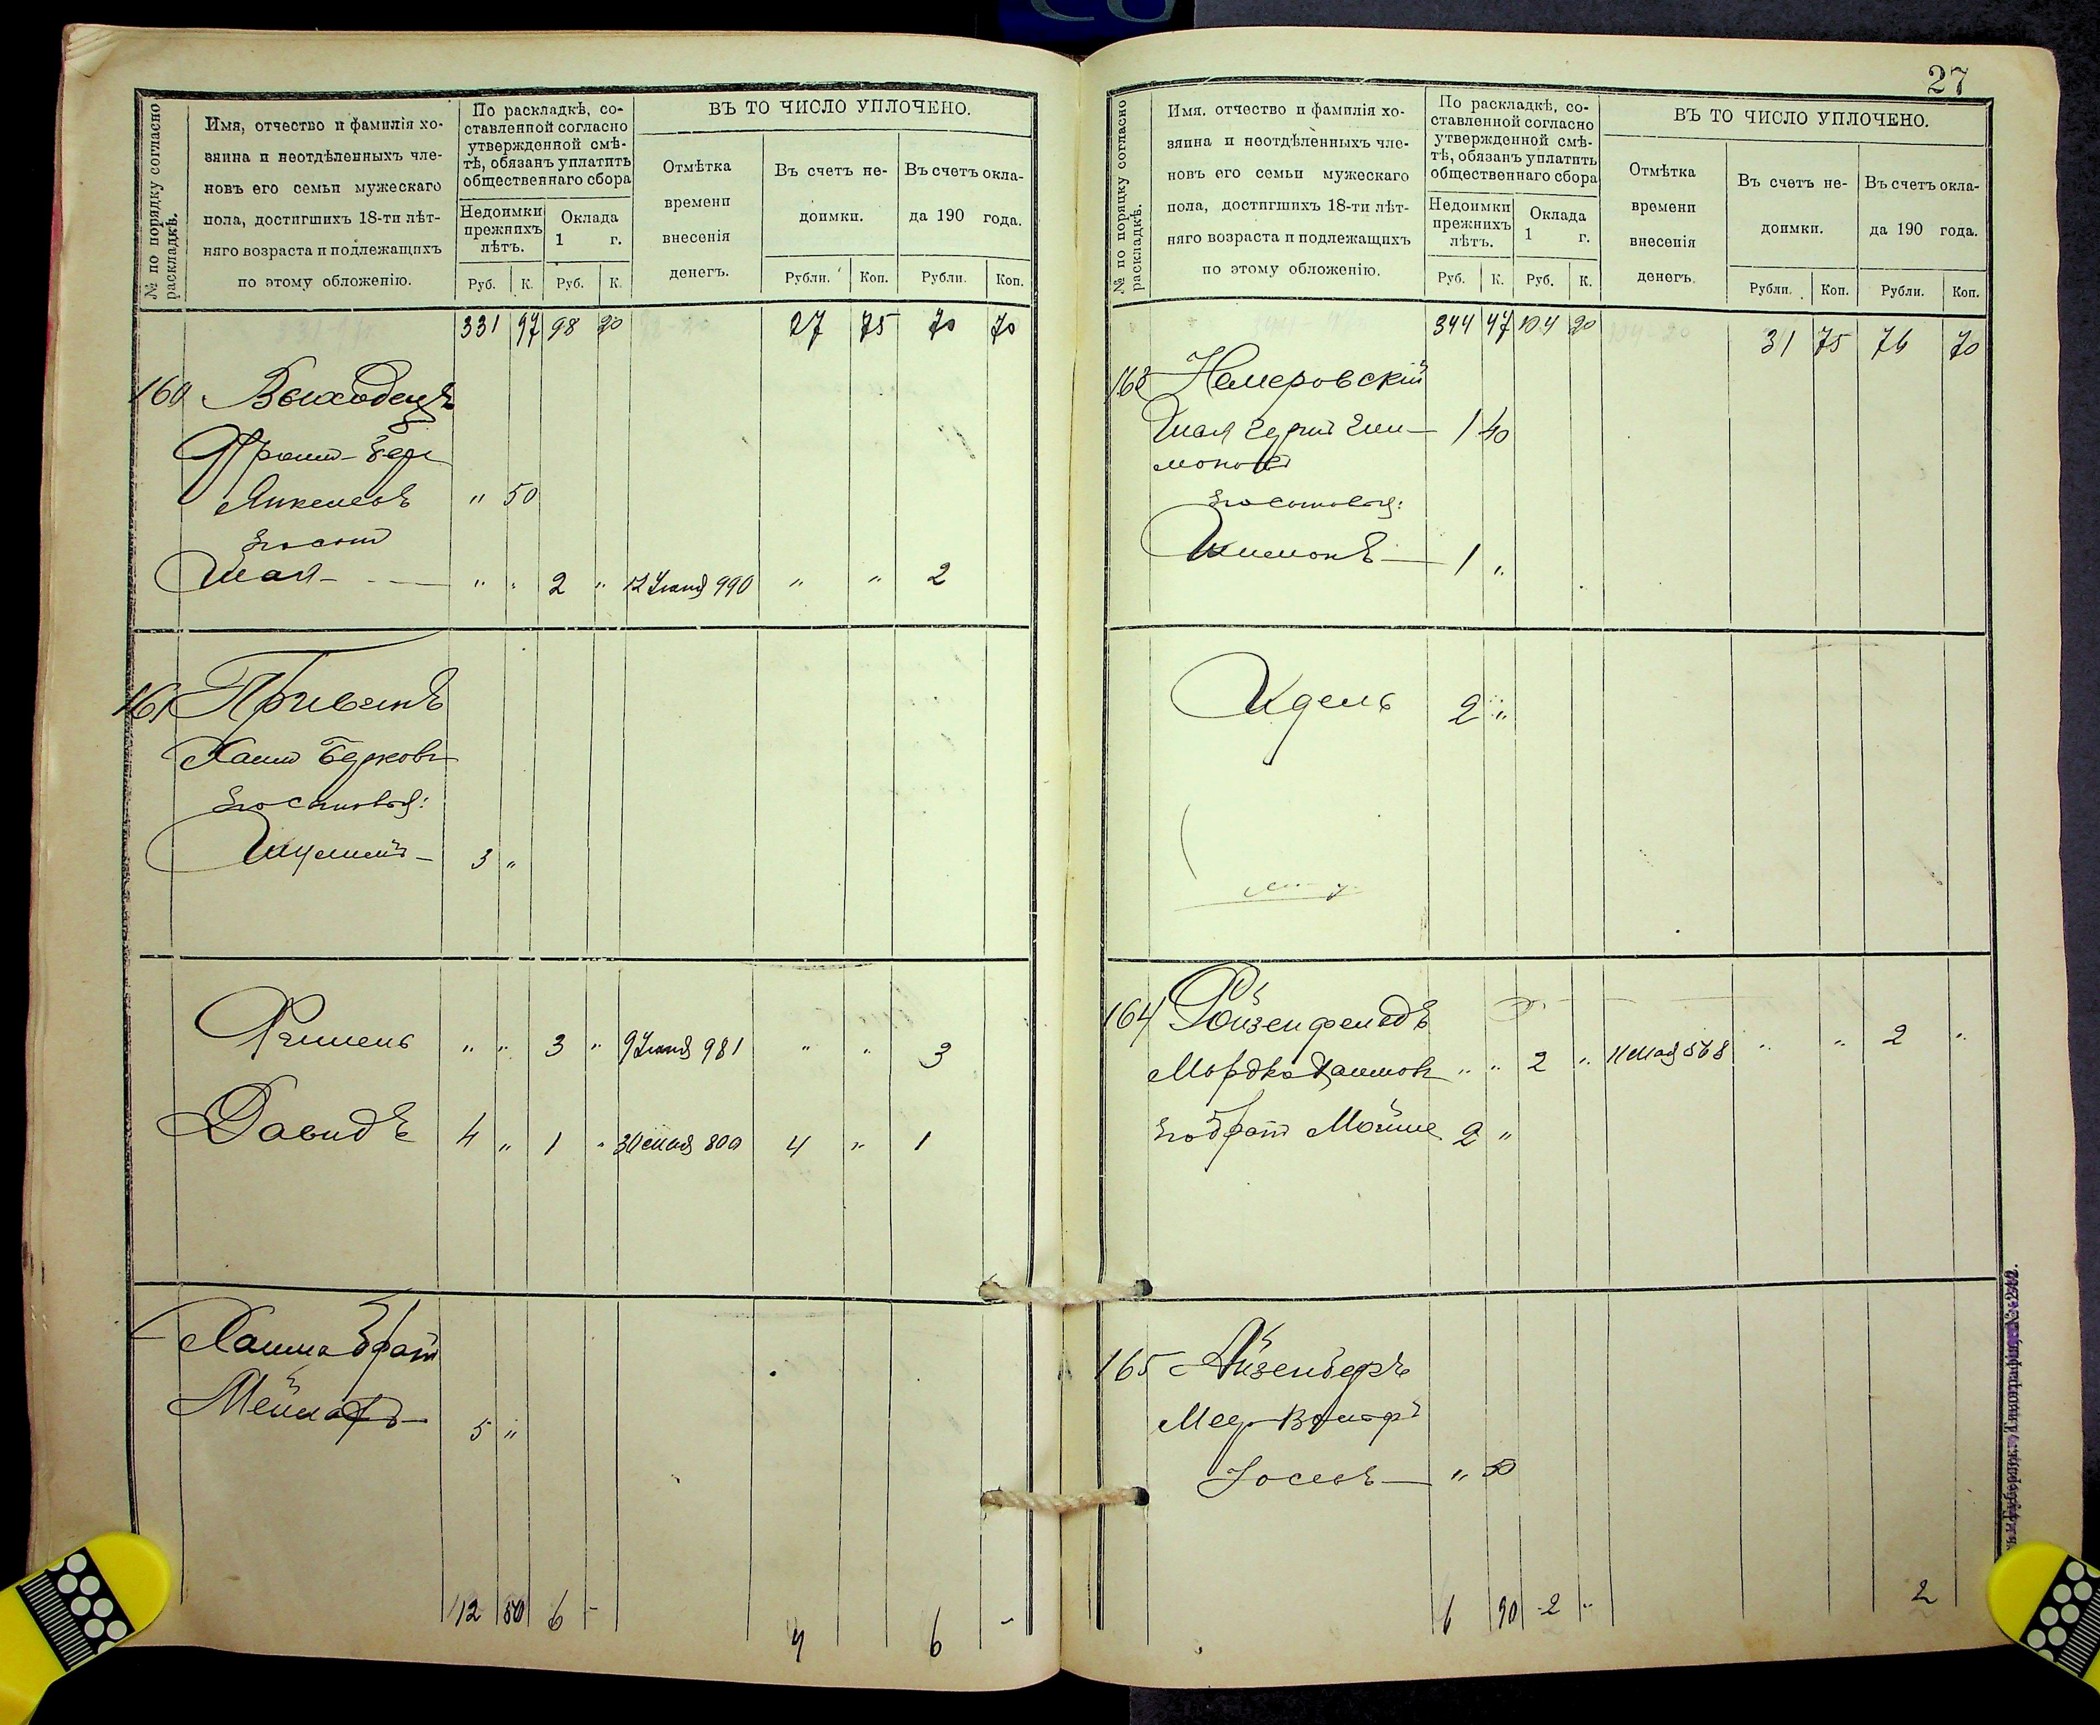 27
№ по порядку согласно раскладкѣ.
Имя, отчество и фамилія хо-
зяина и неотдѣленныхъ чле-
новъ его семьи мужескаго
пола, достигшихъ 18-ти лѣт-
няго возраста и подлежащихъ
по этому обложенію.
По раскладкѣ, со-
ставленной согласно
утвержденной смѣ-
тѣ, обязанъ уплатить
общественнаго сбора
Недоимки
прежнихъ
лѣтъ.
Оклада
1 г.
Руб. К. Руб. К.
ВЪ ТО ЧИСЛО УПЛОЧЕНО.
Отмѣтка
времени
внесенія
денегъ.
Въ счетъ не-
доимки.
Въ счетъ окла-
да 190 года.
Рубли. Коп. Рубли. Коп.
331 97 98 20 27 75 70 70
160 Выходецъ
Фроим-Бер
Янкелевъ " 50
Его сын
Шая " " 2 " 12 Іюня 990 " " 2
161
Хаим Берков
Его сыновья:
3 "
" " 3 " 9 Іюня 981 " " 3
Давидъ 4 " 1 " 30 мая 800 4 " 1
Хаима брат
5 "
12 50 6 - 4 6 -
№ по порядку согласно раскладкѣ.
Имя, отчество и фамилія хо-
зяина и неотдѣленныхъ чле-
новъ его семьи мужескаго
пола, достигшихъ 18-ти лѣт-
няго возраста и подлежащихъ
по этому обложенію.
По раскладкѣ, со-
ставленной согласно
утвержденной смѣ-
тѣ, обязанъ уплатить
общественнаго сбора
Недоимки
прежнихъ
лѣтъ.
Оклада
1 г.
Руб. К. Руб. К.
ВЪ ТО ЧИСЛО УПЛОЧЕНО.
Отмѣтка
времени
внесенія
денегъ.
Въ счетъ не-
доимки.
Въ счетъ окла-
да 190 года.
Рубли. Коп. Рубли. Коп.
344 47 104 20 31 75 76 70
163 Немеровскій
Шая Герш Ши- 1 40
монов
Его сыновья:
Шимонъ 1 "
Идель 2 "
164 Ройзенфельдъ
Мордко Хаимов " " 2 " 11 мая 568 " " 2 "
Его брат Мойше 2 "
165 Айзенбергъ
Меер-Вольф
Іосевъ " 50
6 90 2 " 2